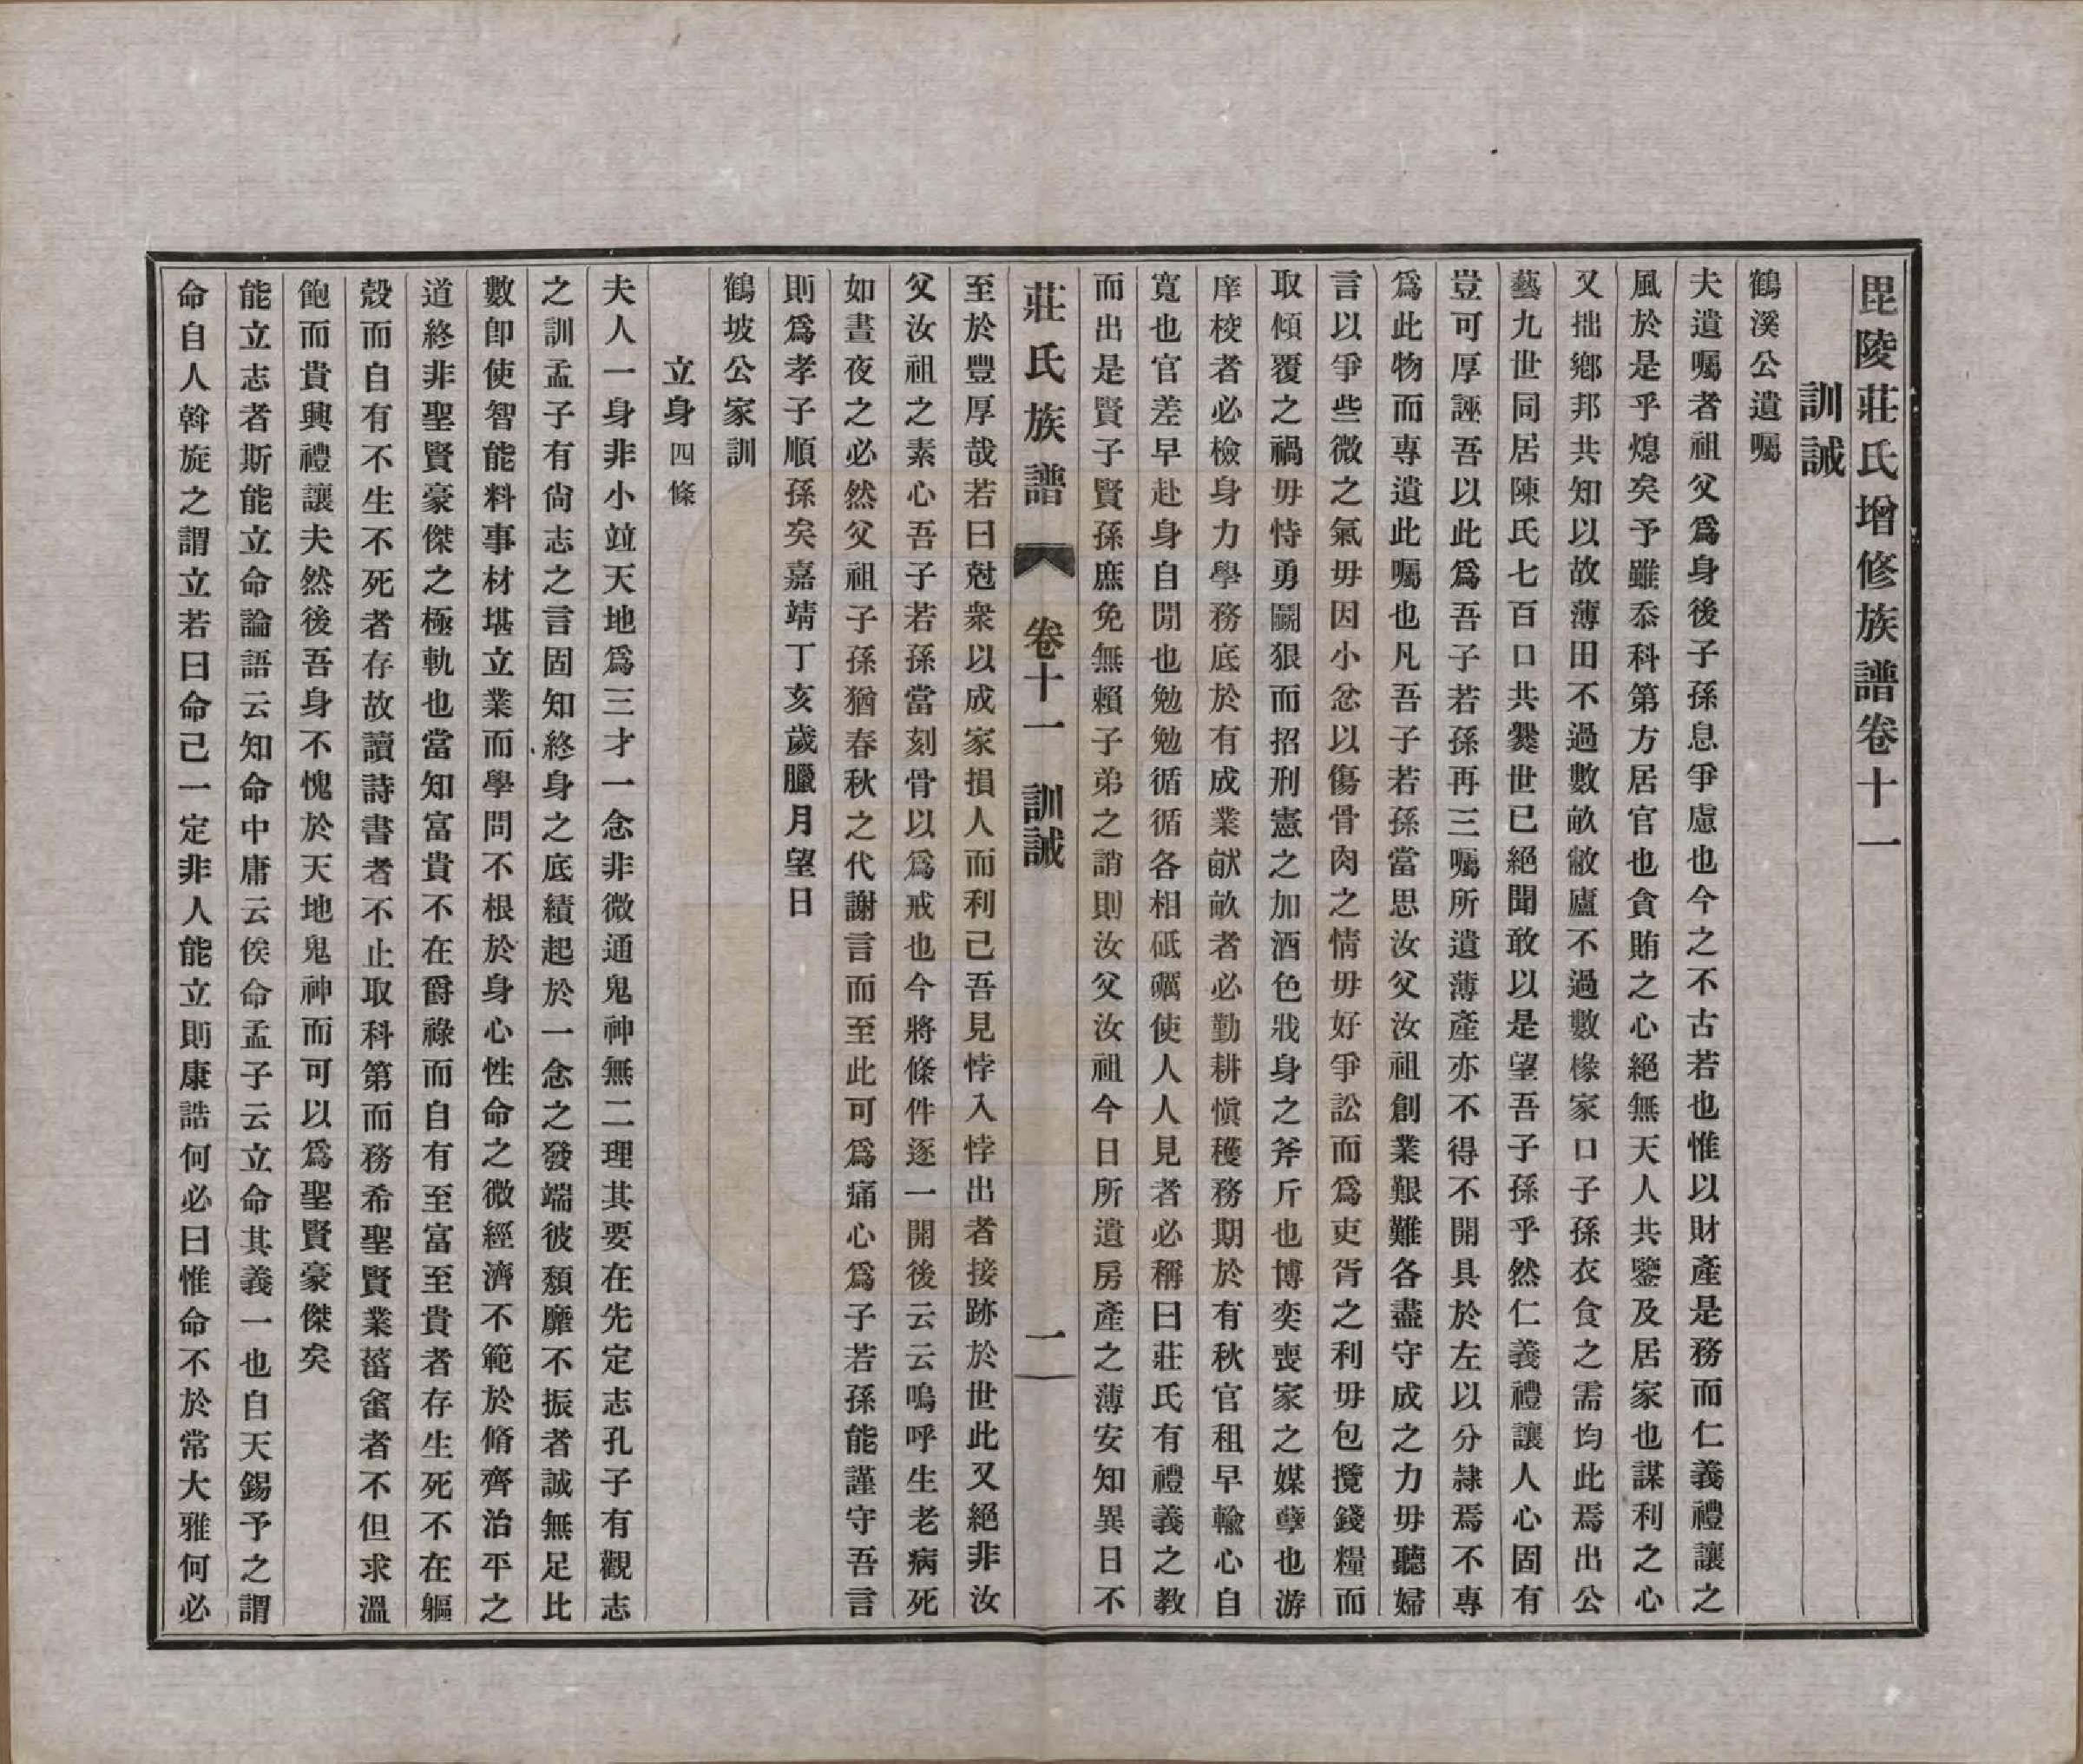 毘陵莊氏增修族譜卷十一
訓誡
鶴溪公遺囑
夫遺囑者祖父爲身後子孫息爭慮也今之不古若也惟以財產是務而仁義禮讓之
風於是乎熄矣予雖忝科第方居官也貪賄之心絕無天人共鑒及居家也謀利之心
又拙鄉邦共知以故薄田不過數畝敝廬不過數椽家口子孫衣食之需均此焉出公
藝九世同居陳氏七百口共爨世已絕聞敢以是望吾子孫乎然仁義禮讓人心固有
豈可厚誣吾以此爲吾子若孫再三囑所遺薄產亦不得不開具於左以分隷焉不專
爲此物而專遺此囑也凡吾子若孫當思汝父汝祖創業艱難各盡守成之力毋聽婦
言以爭些微之氣毋因小忿以傷骨肉之情毋好爭訟而爲吏胥之利毋包攬錢糧而
取傾覆之禍毋恃勇鬭狠而招刑憲之加酒色戕身之斧斤也博奕喪家之媒孽也游
庠校者必檢身力學務底於有成業畎畝者必勤耕愼穫務期於有秋官租早輸心自
寬也官差早赴身自閒也勉勉循循各相砥礪使人人見者必稱曰莊氏有禮義之教
而出是賢子賢孫庶免無賴子弟之誚則汝父汝祖今日所遺房產之薄安知異日不
莊氏族譜 卷十一 訓誡 一
至於豐厚哉若曰尅衆以成家損人而利己吾見悖入悖出者接跡於世此又絕非汝
父汝祖之素心吾子若孫當刻骨以爲戒也今將條件逐一開後云云嗚呼生老病死
如晝夜之必然父祖子孫猶春秋之代謝言而至此可爲痛心爲子若孫能謹守吾言
則爲孝子順孫矣嘉靖丁亥歲臘月望日
鶴坡公家訓
立身四條
夫人一身非小竝天地爲三才一念非微通鬼神無二理其要在先定志孔子有觀志
之訓孟子有尙志之言固知終身之底績起於一念之發端彼頹靡不振者誠無足比
數卽使智能料事材堪立業而學問不根於身心性命之微經濟不範於脩齊治平之
道終非聖賢豪傑之極軌也當知富貴不在爵祿而自有至富至貴者存生死不在軀
殻而自有不生不死者存故讀詩書者不止取科第而務希聖賢業菑畬者不但求溫
飽而貴興禮讓夫然後吾身不愧於天地鬼神而可以爲聖賢豪傑矣
能立志者斯能立命論語云知命中庸云俟命孟子云立命其義一也自天錫予之謂
命自人斡旋之謂立若曰命己一定非人能立則康誥何必曰惟命不於常大雅何必